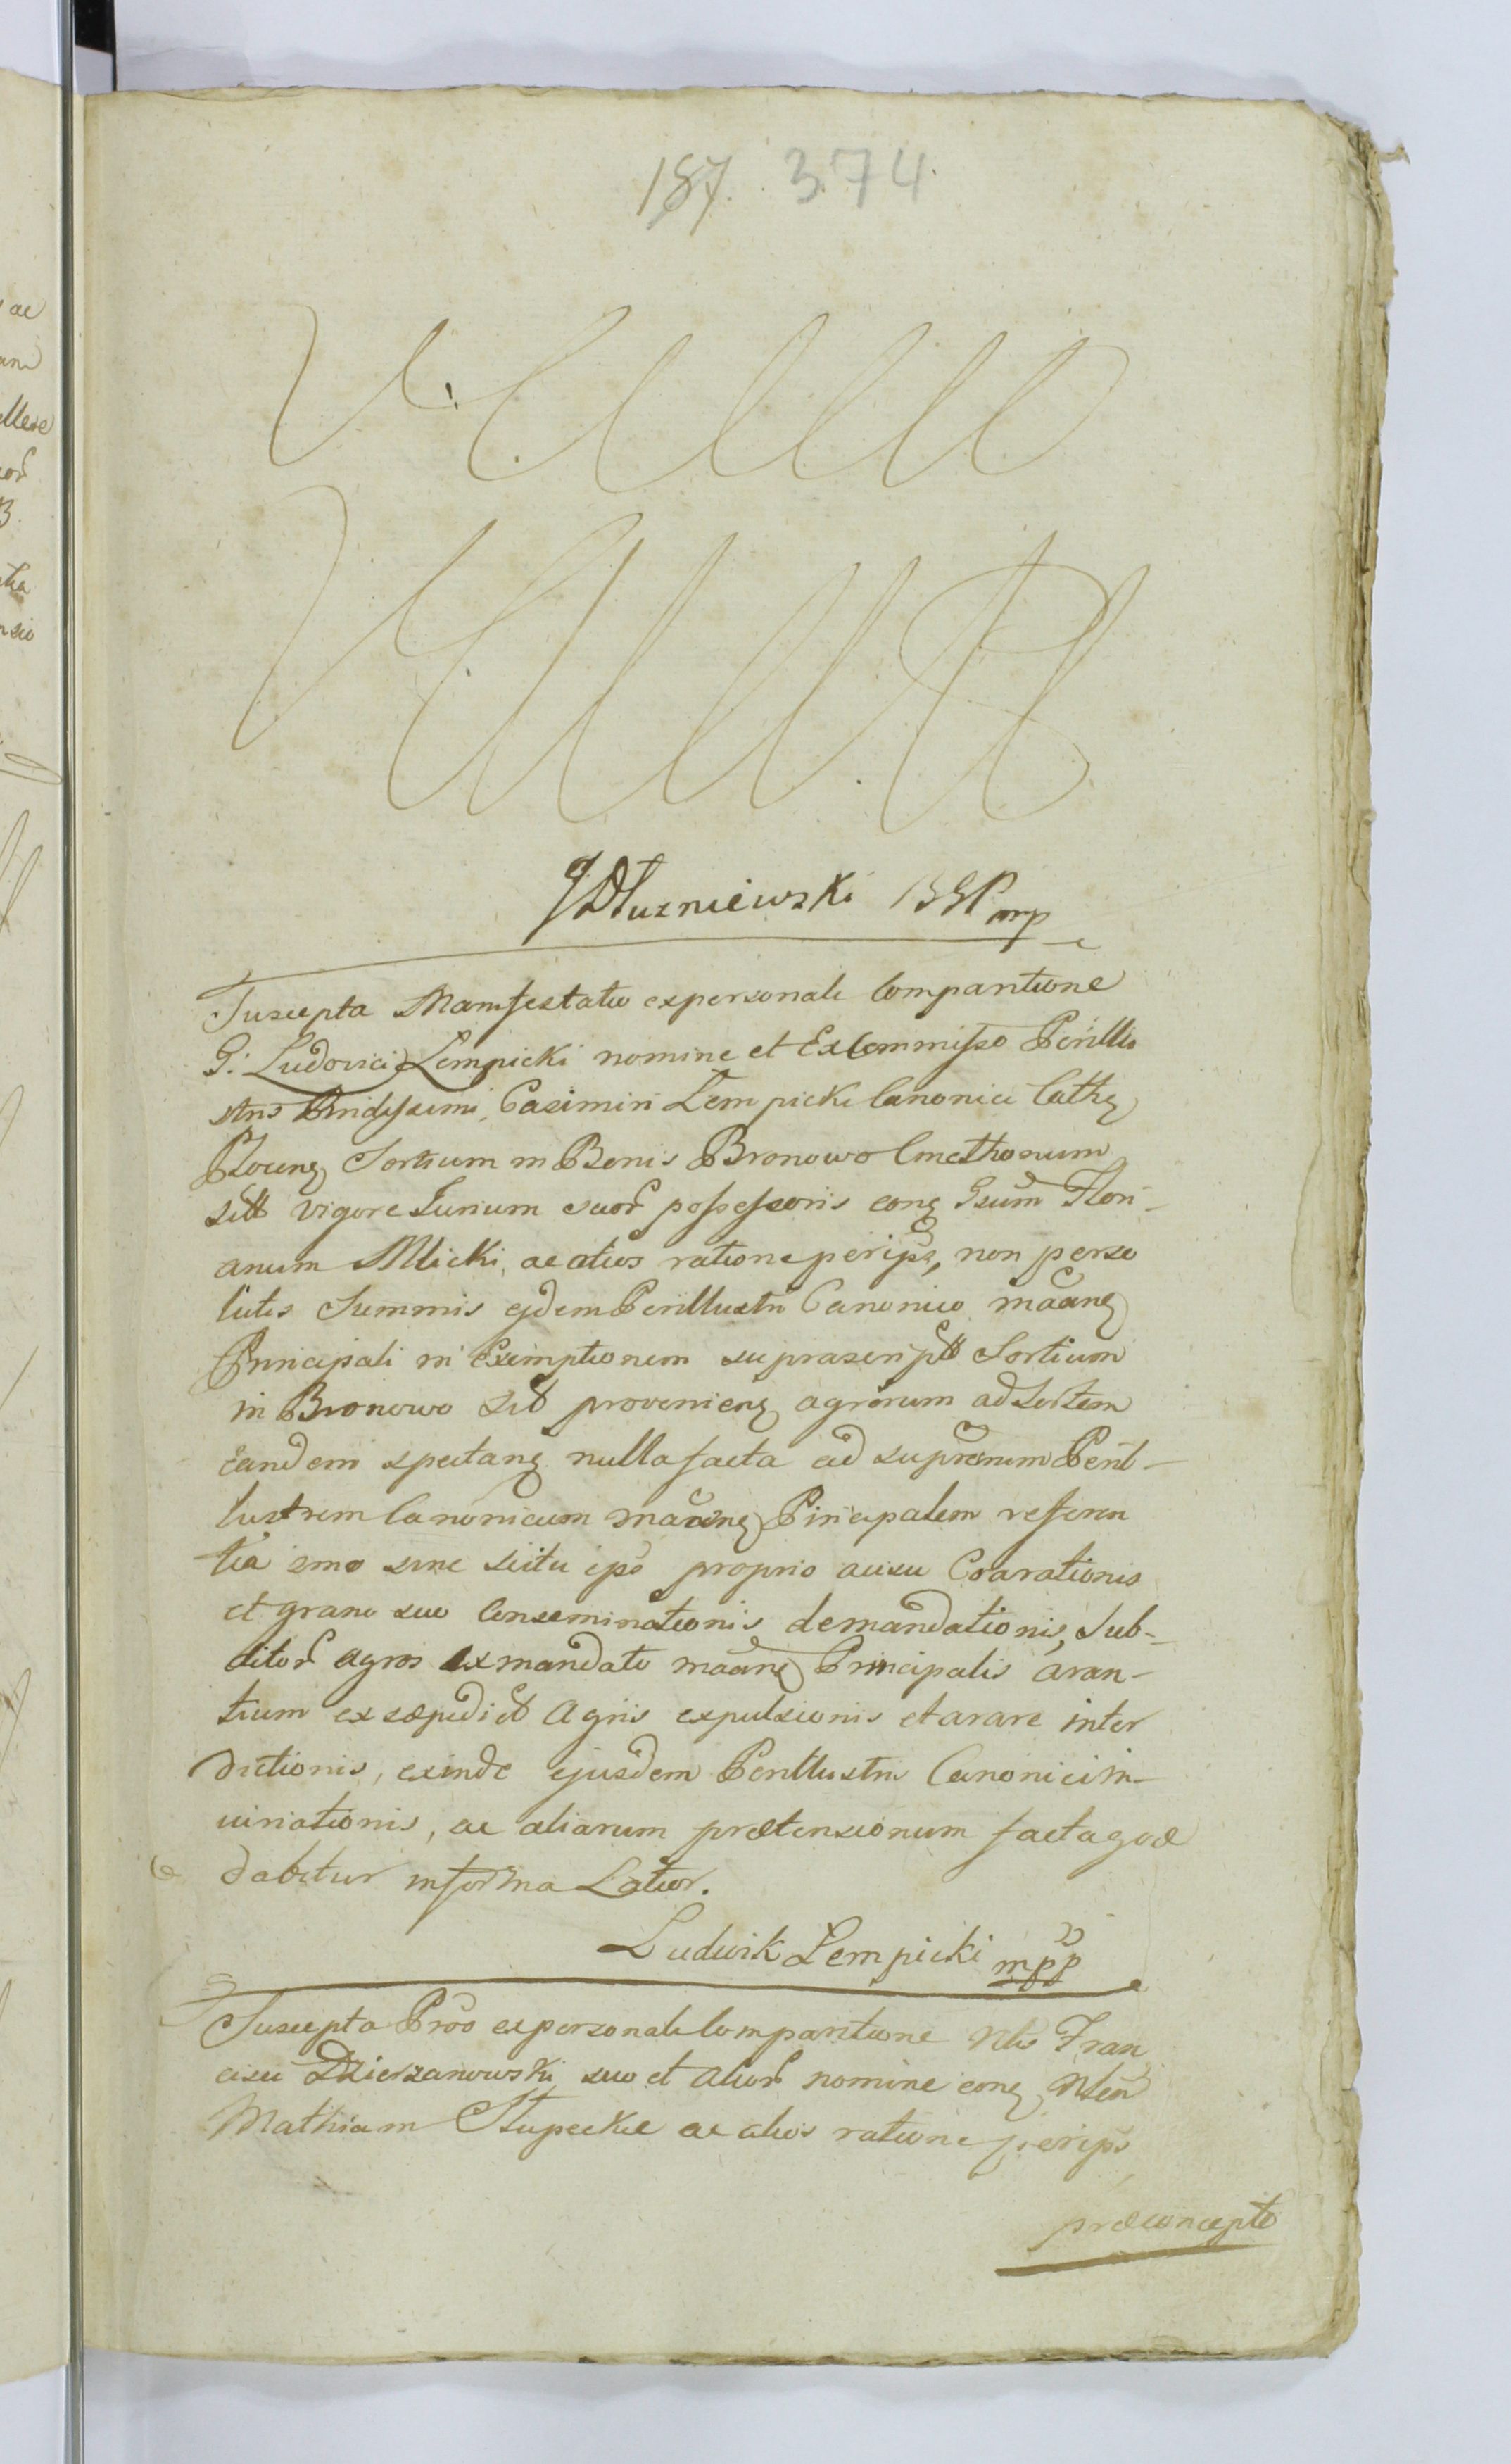 187. 374.
JDłuzniewski BGP mp
Suscepta Manifestatio expersonali Comparitione
G: Ludovici Lempicki nomine et Excommisso Perillu
stris Rndissimi Casimiri Lempicki Canonici Cathẹ
Plocenẹ Sortium in Bonis Bronowo Cmethonum
sitt vigore Iurium suor possessoris conẹ Gsum Flori-
anum Mlicki, ac alios ratione perips, non perso
lutis Summis ejdem Perillustri Canonico mãanẹ
Principali in Exemptionem suprascriptt Sortium
in Bronowo sit provenienẹ agrorum ad Sortem
eandem spectanẹ nulla facta ad supremum Peril-
lustrem Canonicum mãanẹ Principalem referen
tia imo sine scitu ips proprio ausu Coarationis
et grano suo Conseminationis demandationis, Sub-
ditor agros ex mandato mãanẹ Principalis aran-
tium ex sæpedict Agris expulsionis et arare inter
dictionis, exinde ejusdem Perillustri Canonici in-
iuriationis, ac aliarum prætensionum facta qvæ
dabitur in forma Latior.
Ludwik Lempicki mpp
Suscepta Prõo expersonali Comparitione Nlis Fran
cisci Dzierzanowski suo et alior nomine conẹ Nlem
Mathiam Słupecki ac alios ratione perips
præconcepto